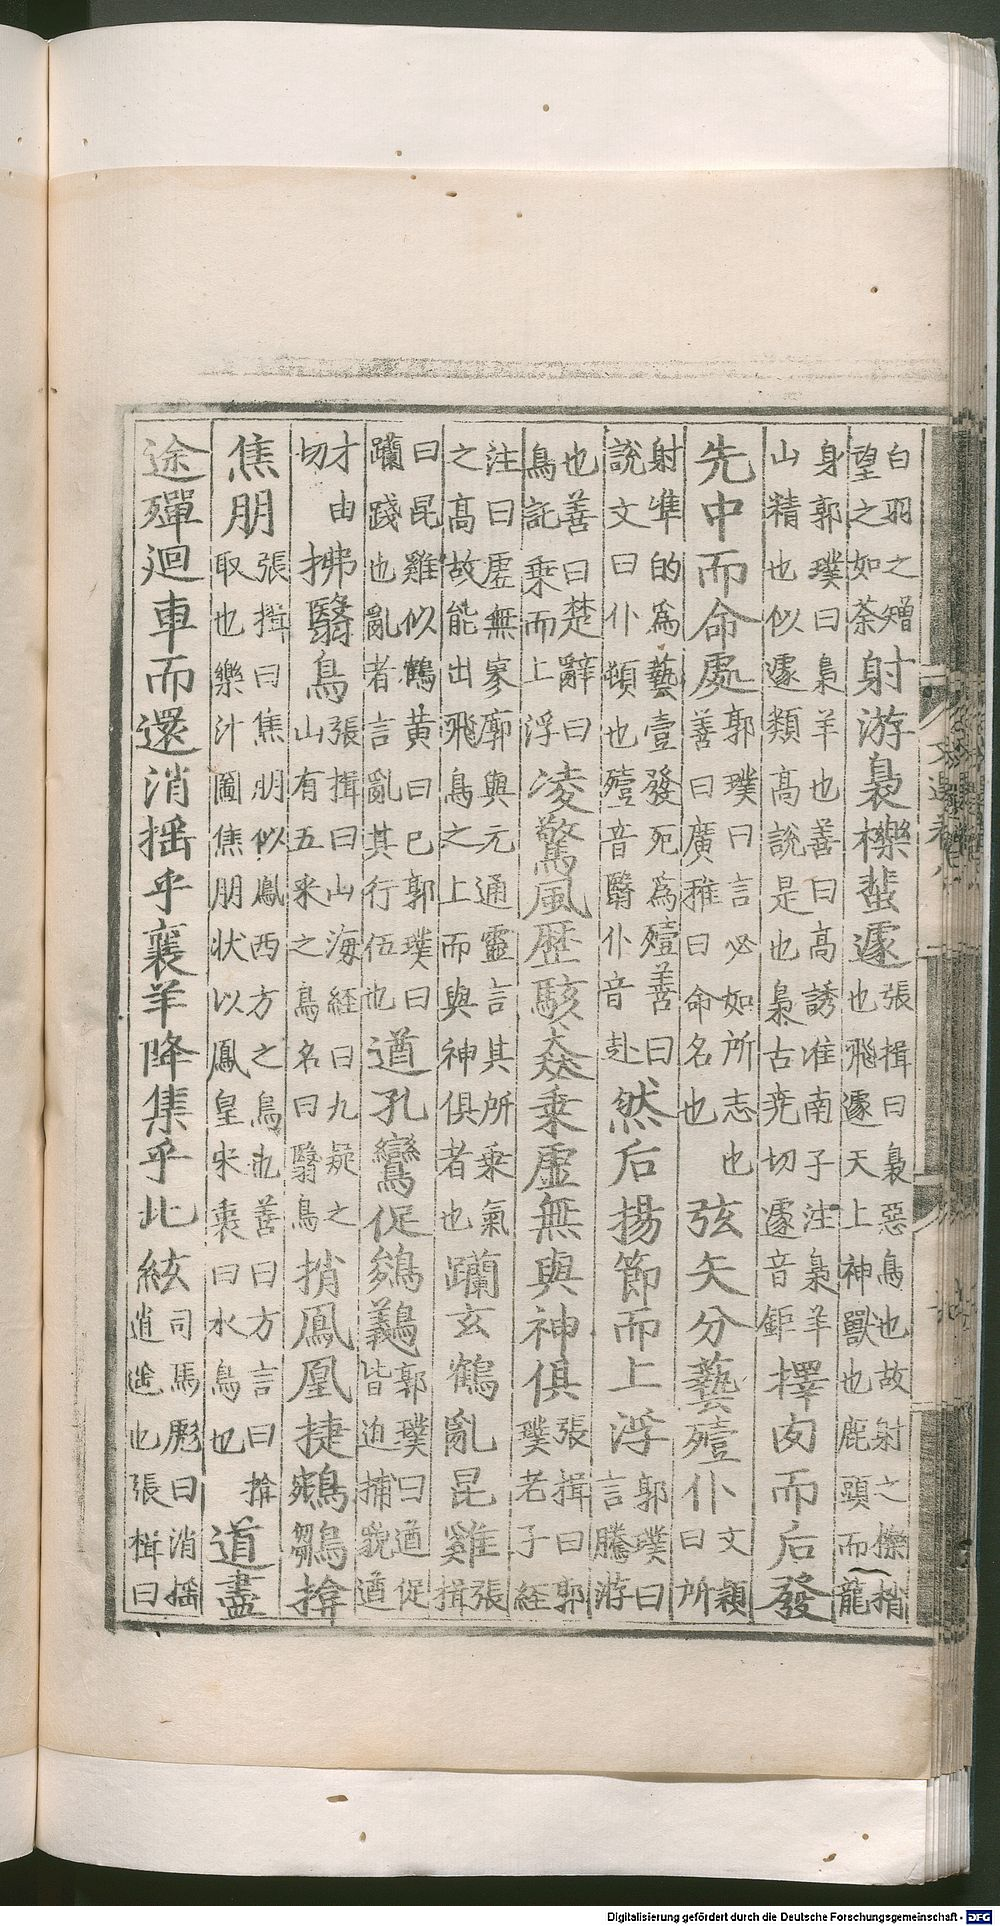 白羽之矰望之如荼射游梟櫟蜚遽張揖曰梟惡鳥也故射之櫟捎也飛遽天上神獸也鹿頭而龍
身郭璞曰梟羊也善曰高誘淮南子注梟羊山精也似遽類高說是也梟古尭切遽音鉅擇肉而后發
先中而命處郭璞曰言必如所志也善曰廣雅曰命名也弦矢分藝殪仆文穎曰所
射準的爲藝壹發死爲殪善曰說文曰仆頓也殪音翳仆音赴然后揚節而上浮郭璞曰言騰游
也善曰楚辭曰鳥託乗而上浮凌驚風歷駭猋乗虛無與神俱張揖曰郭璞老子經
注曰虛無寥廓與元通靈言其所乗氣之高故能出飛鳥之上而與神俱者也躪玄鶴亂昆雞張揖
曰昆雞似鶴黃曰已郭璞曰躪踐也亂者言亂其行伍也遒孔鸞促鵔鸃郭璞曰遒促皆迫捕貌遒
才由切拂翳鳥張揖曰山海經曰九疑之山有五采之鳥名曰翳鳥捎鳳凰捷鵷鶵揜
焦朋張揖曰焦朋似鳳西方之鳥也善曰方言曰揜取也樂汁圖焦朋狀以鳳皇宋衷曰水鳥也道盡
途殫迴車而還消揺乎襄羊降集乎北紘司馬彪曰消揺逍遙也張楫曰
Digitalisierung gefördert durch die Deutsche Forschungsgemeinschaft - DFG